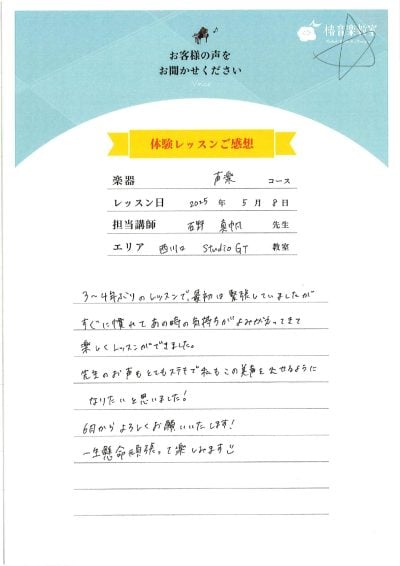 椿音楽教室
お客様の声を
お聞かせください
体験レッスンご感想
楽器 声楽 コース
レッスン日 2025 年 5 月 8 日
担当講師 石野 真帆 先生
エリア 西川口 Studio GT 教室
3〜4年ぶりのレッスンで、最初は緊張していましたが
すぐに慣れてあの時の気持ちがよみがえってきて
楽しくレッスンができました。
先生のお声もとてもステキで私もこの美声を出せるように
なりたいと思いました!
6月からよろしくお願いいたします!
一生懸命頑張って楽しみます